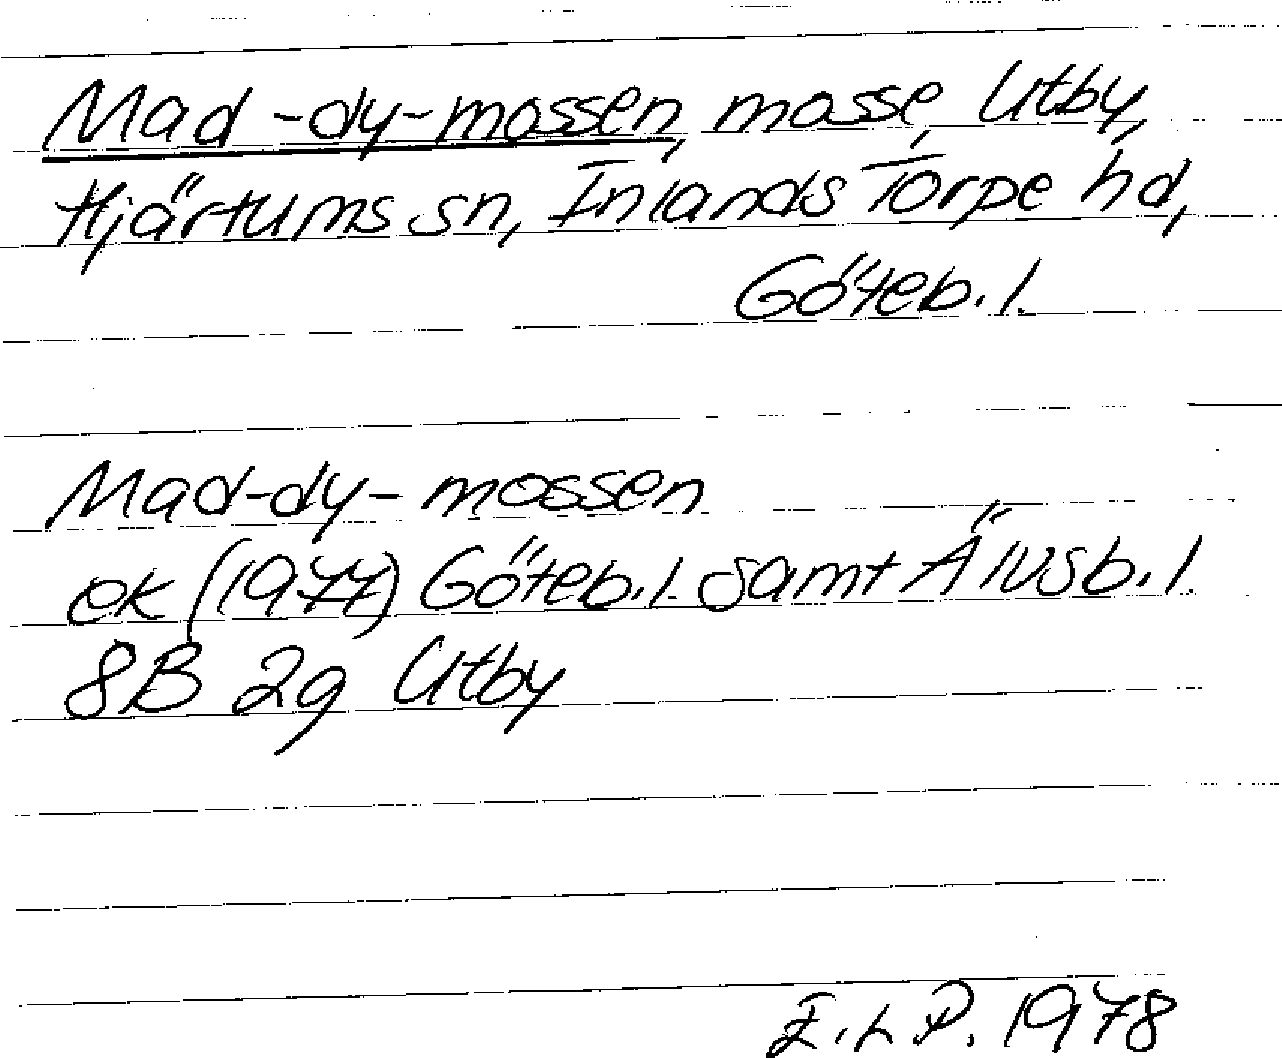 Mad-dy-mossen, mosse, Utby,
Hjärtums sn, Inlands Torpe hd,
Göteb. l.
Mad-dy-mossen
ek (1977) Göteb. l. samt Älvsb. l.
8B 2g Utby
E.L.P. 1978